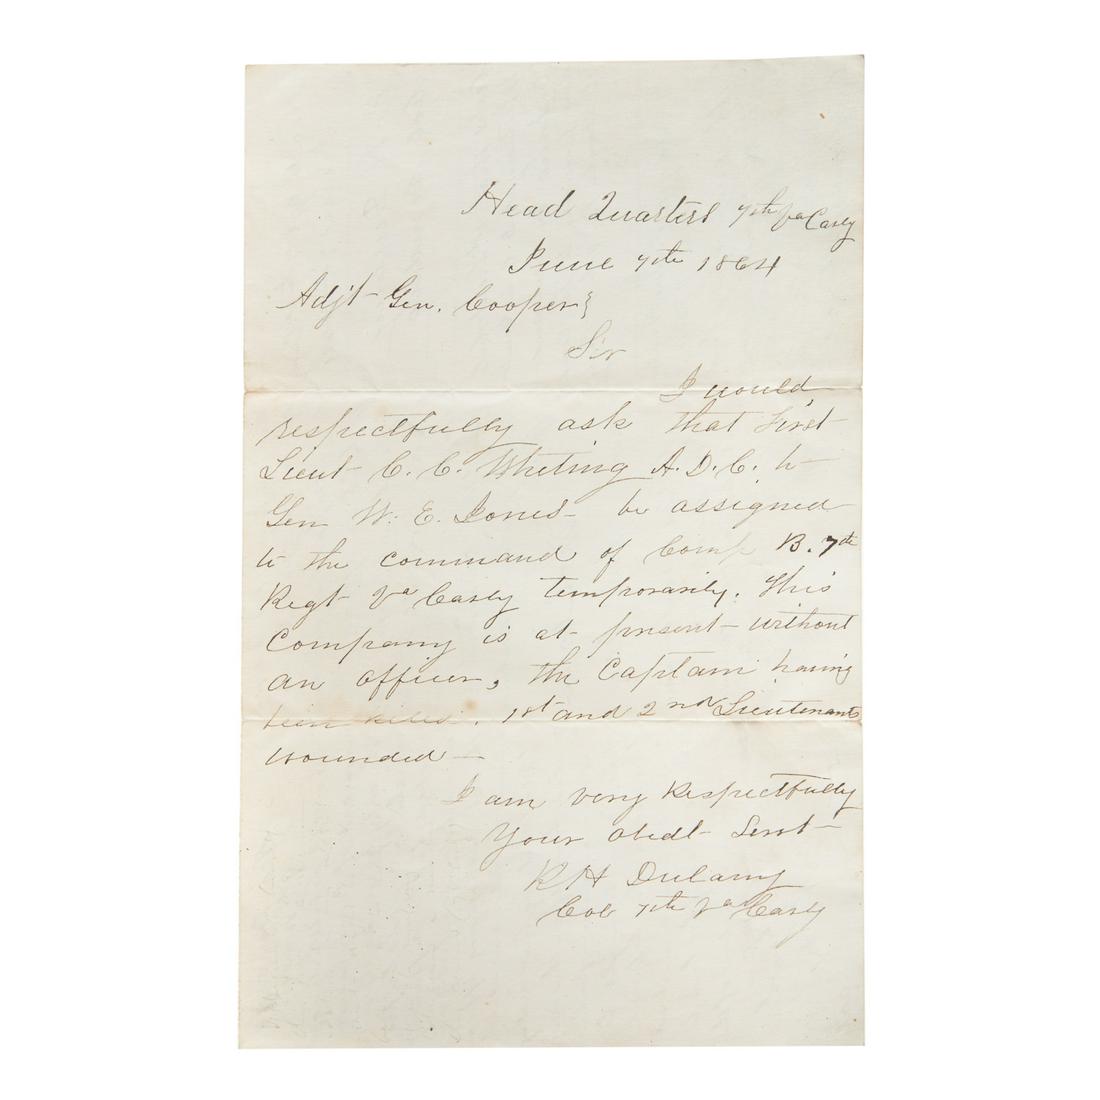 Head Quarters 7th Va Cavly
June 7th 1864
Adj't Gen. Cooper}
Sir
I would,
respectfully ask that First
Lieut C. C. Whiting A. D. C. to
Gen W. E. Jones be assigned
to the command of Comp B. 7th
Regt Va Cavly temporarily. This
Company is at present without
an officer, the Captain having
been killed. 1st and 2nd Lieutenants
wounded —
I am very Respectfully
Your obedt Servt
R H Dulany
Col 7th Va Cavly